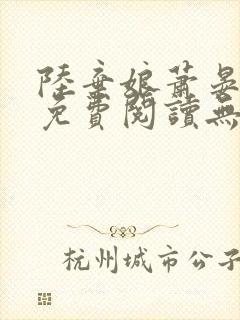 陸棄娘蕭晏
免費閱讀無
杭州城市公子